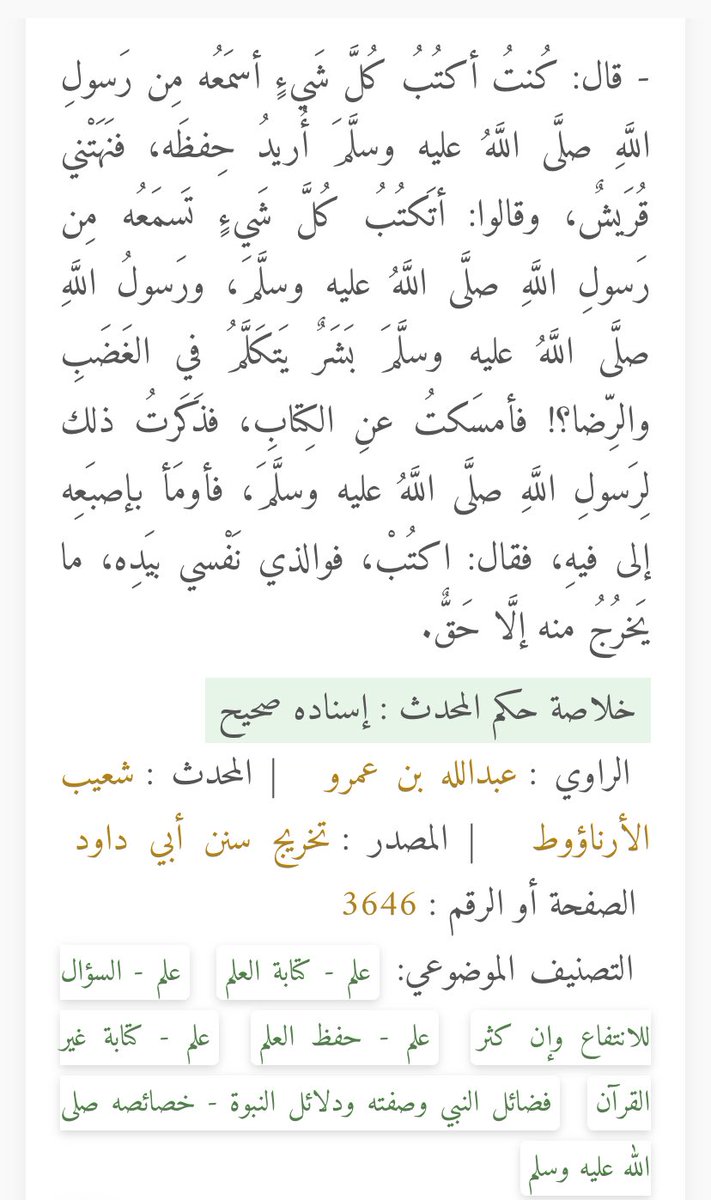 - قال: كُنتُ أكتُبُ كُلَّ شَيءٍ أسمَعُه مِن رَسولِ
اللَّهِ صلَّى اللَّهُ عليه وسلَّمَ أُريدُ حِفظَه، فنَهَتْني
قُرَيشٌ، وقالوا: أتَكتُبُ كُلَّ شَيءٍ تَسمَعُه مِن
رَسولِ اللَّهِ صلَّى اللَّهُ عليه وسلَّمَ، ورَسولُ اللَّهِ
صلَّى اللَّهُ عليه وسلَّمَ بَشَرٌ يَتكَلَّمُ في الغَضَبِ
والرِّضا؟! فأمسَكتُ عنِ الكِتابِ، فذَكَرتُ ذلك
لِرَسولِ اللَّهِ صلَّى اللَّهُ عليه وسلَّمَ، فأومَأ بإصبَعِه
إلى فيهِ، فقال: اكتُبْ، فوالذي نَفْسي بيَدِه، ما
يَخرُجُ منه إلَّا حَقٌّ.
خلاصة حكم المحدث : إسناده صحيح
الراوي : عبدالله بن عمرو | المحدث : شعيب
الأرناؤوط | المصدر : تخريج سنن أبي داود
الصفحة أو الرقم : 3646
التصنيف الموضوعي: علم - كتابة العلم علم - السؤال
للانتفاع وإن كثر علم - حفظ العلم علم - كتابة غير
القرآن فضائل النبي وصفته ودلائل النبوة - خصائصه صلى
الله عليه وسلم